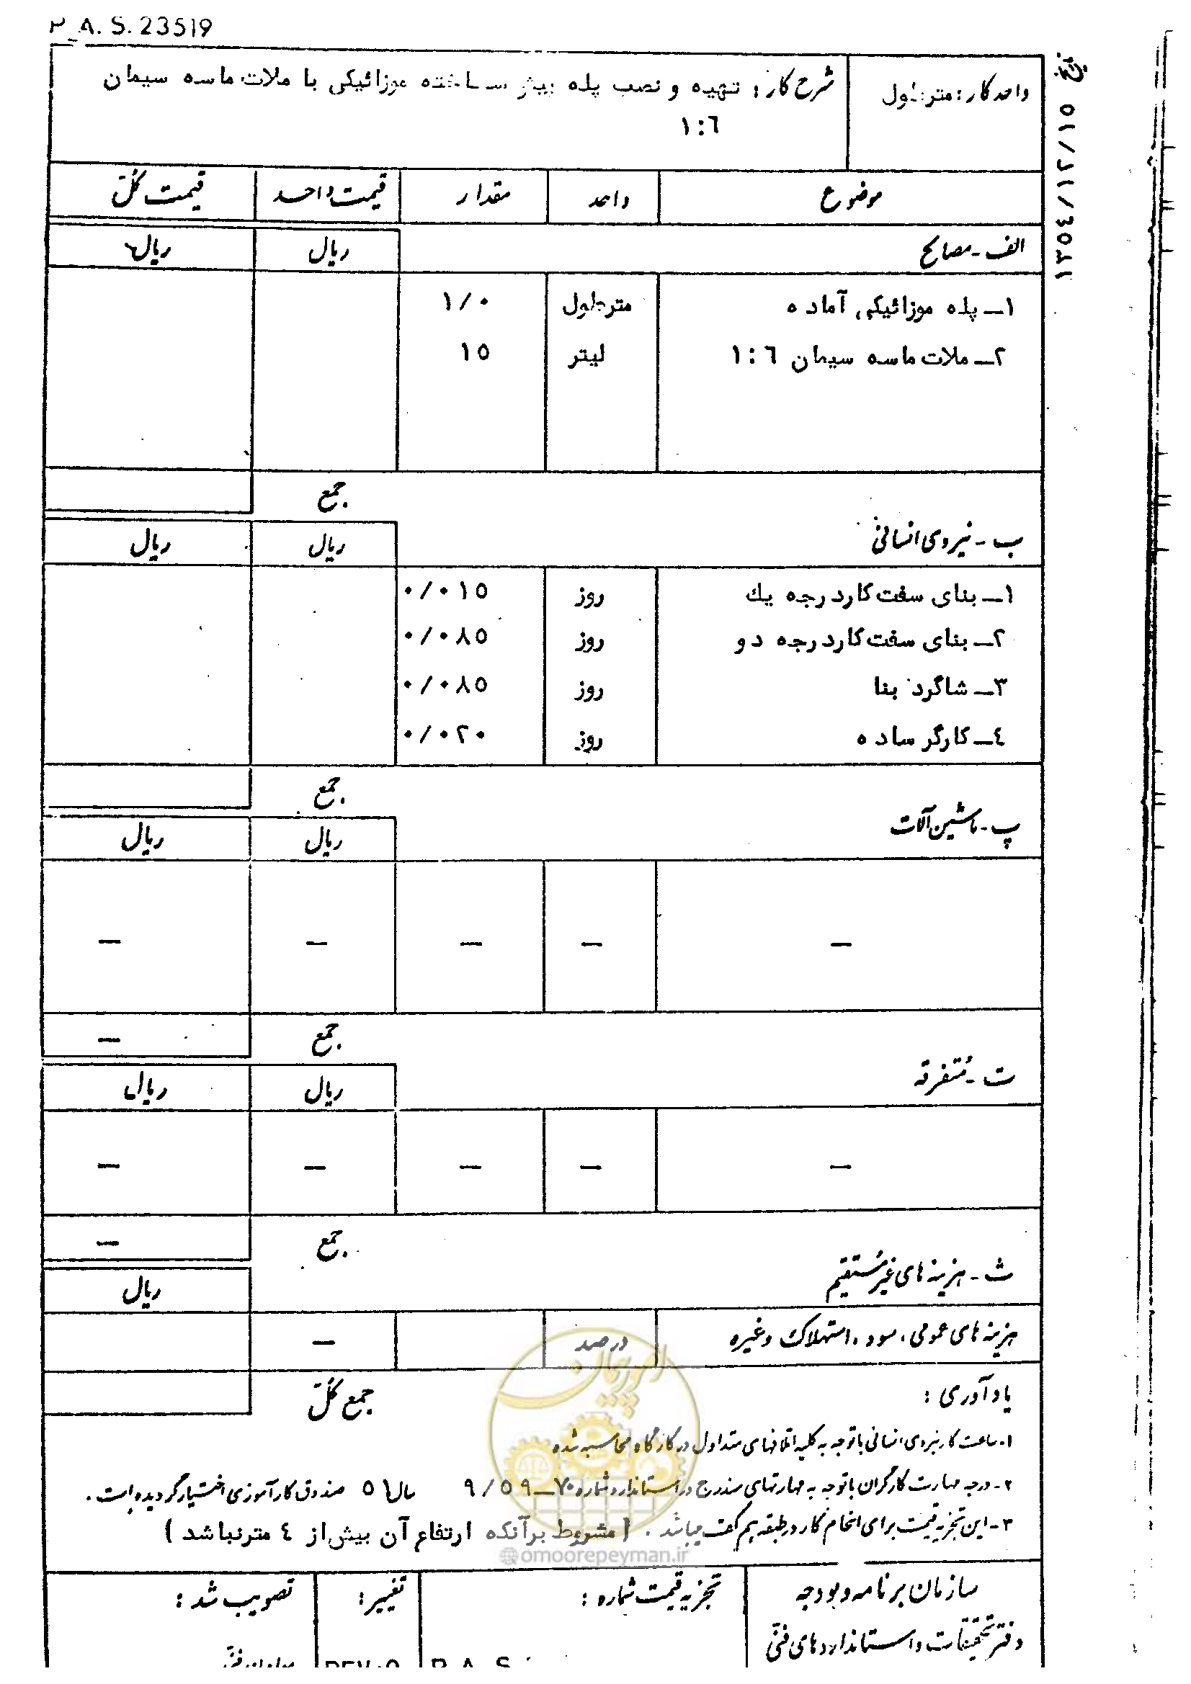 P.A.S. 23519
تاریخ ۱۳۵٤/۱۲/۱۵
واحد کار : مترطول
شرح کار : تهیه و نصب پله پیش ساخته موزائیکی با ملات ماسه سیمان
۱:٦
موضوع واحد مقدار قیمت واحد قیمت کل
الف - مصالح ریال ریال
۱ـ پله موزائیکی آماده مترطول ۱/۰
۲ـ ملات ماسه سیمان ۱:٦ لیتر ۱۵
جمع
ب - نیروی انسانی ریال ریال
۱ـ بنای سفت کار درجه یك روز ۰/۰۱۵
۲ـ بنای سفت کار درجه دو روز ۰/۰۸۵
۳ـ شاگرد بنا روز ۰/۰۸۵
٤ـ کارگر ساده روز ۰/۰۲۰
جمع
پ - ماشین آلات ریال ریال
— — — — —
جمع —
ت - متفرقه ریال ریال
— — — — —
جمع —
ث - هزینه های غیر مستقیم ریال
هزینه های عمومی ، سود ، استهلاک وغیره درصد —
جمع کل
یادآوری :
۱- ساعت کار نیروی انسانی با توجه به کلیه اتلافهای متداول در کارگاه محاسبه شده
۲- درجه مهارت کارگران با توجه به مهارتهای مندرج در استاندارد شماره ۷۰ـ۹/۵۹ سال ۵۱ صندوق کارآموزی اختیار گردیده است .
۳- این تجزیه قیمت برای انجام کار در طبقه هم کف میباشد . ( مشروط برآنکه ارتفاع آن بیش از ٤ متر نباشد )
امور پیمان
@omoorepeyman.ir
سازمان برنامه و بودجه
دفتر تحقیقات و استانداردهای فنی
تجزیه قیمت شماره :
P.A.S.
تغییر :
REV.0
تصویب شد :
معاون فنی